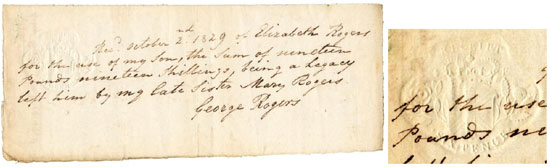 Recd. October 2nd 1829 of Elizabeth Rogers
for the use of my Son, the Sum of nineteen
Pounds nineteen Shillings, being a Legacy
left him by my late Sister Mary Rogers
George Rogers
for the use
Pounds ne